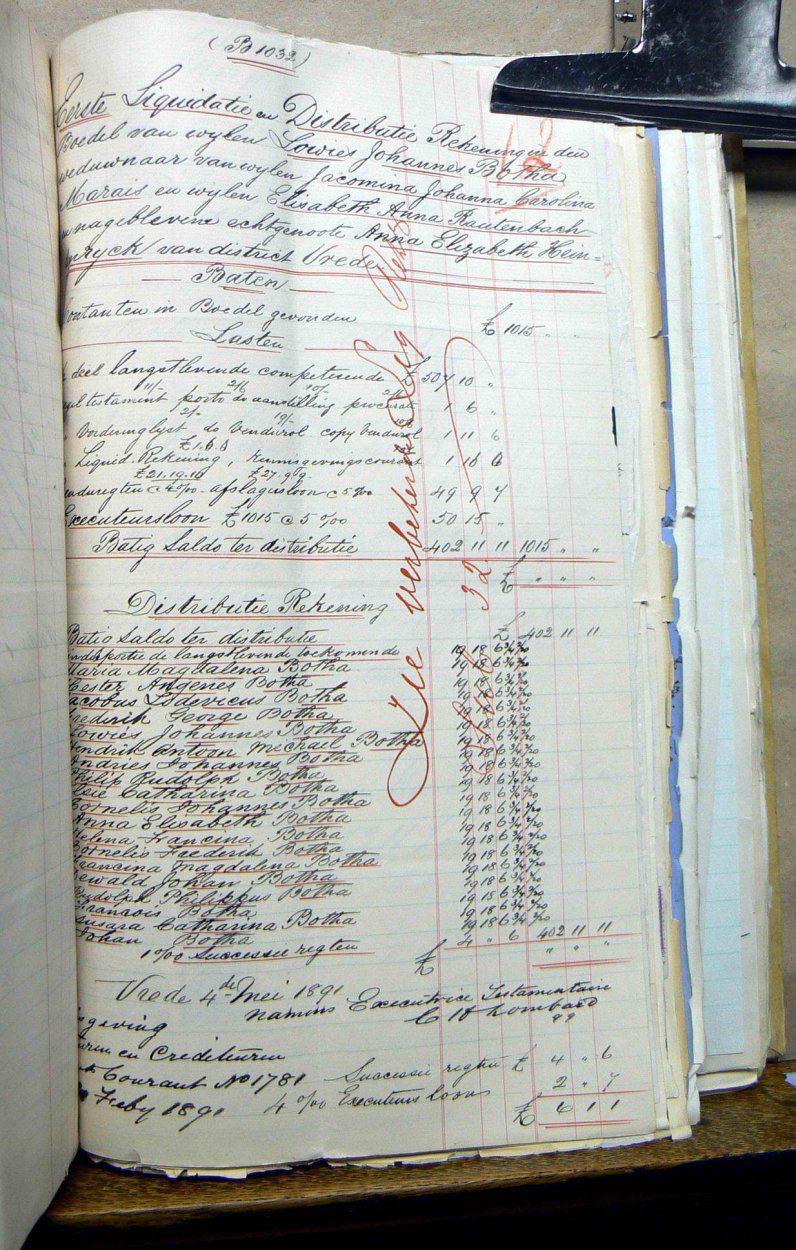 (B1032)
Eerste Liquidatie en Distributie Rekening in den
Boedel van wylen Lowies Johannes Botha
weduwnaar van wylen Jacomina Johanna Carolina
Marais en wylen Elisabeth Anna Rautenbach
nageblevene echtgenoote Anna Elizabeth Hein=
ryck van district Vrede
Baten
Contanten in Boedel gevonden £ 1015 " "
Lasten
deel langstlevende competeerende £ 507 10 "
testament porto do aanstelling procuratie 1 6 "
Vorderinglyst do Vendurol copy Vendurol 1 11 6
£1.6.6
Liquid. Rekening, kennisgeving courant 1 18 6
£21.19.10 £27.9.9
Venduregten @ 4% afslagersloon @ 5% 49 9 7
Executeursloon £1015 @ 5% 50 15 "
Batig Saldo ter distributie 402 11 11 1015 " "
£ " " "
Zie verbeterde
32
Distributie Rekening
Batig Saldo ter distributie £ 402 11 11
Kindsportie de langstlevende toekomende 19 18 6¾
Maria Magdalena Botha 19 18 6¾
Hester Angenes Botha 19 18 6¾
Jacobus Lodevicus Botha 19 18 6¾
Frederik George Botha 19 18 6¾
Lowies Johannes Botha 19 18 6¾
Hendrik Antoon Michael Botha 19 18 6¾
Andries Johannes Botha 19 18 6¾
Philip Rudolph Botha 19 18 6¾
Elsie Catharina Botha 19 18 6¾
Cornelis Johannes Botha 19 18 6¾
Anna Elisabeth Botha 19 18 6¾
Helena Francina Botha 19 18 6¾
Cornelis Frederik Botha 19 18 6¾
Francina Magdalena Botha 19 18 6¾
Dewald Johan Botha 19 18 6¾
Rudolph Philippus Botha 19 18 6¾
Francois Botha 19 18 6¾
Susara Catharina Botha 19 18 6¾
Johan Botha 19 18 6¾
1% Successie regten 4 " 6 402 11 11
£ " " "
Vrede 4de Mei 1891
namens Executrice Testamentaire
C H Lombard
qq
geving
en Crediteuren
Courant No 1781 Successie regten £ 4 " 6
Feby 1891 4% Executeurs loon 2 " 7
£ 6 1 1